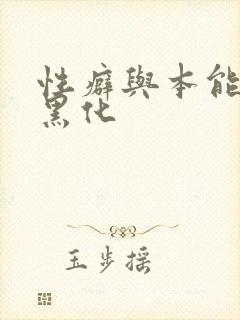 性癖與本能
黑化
玉步搖